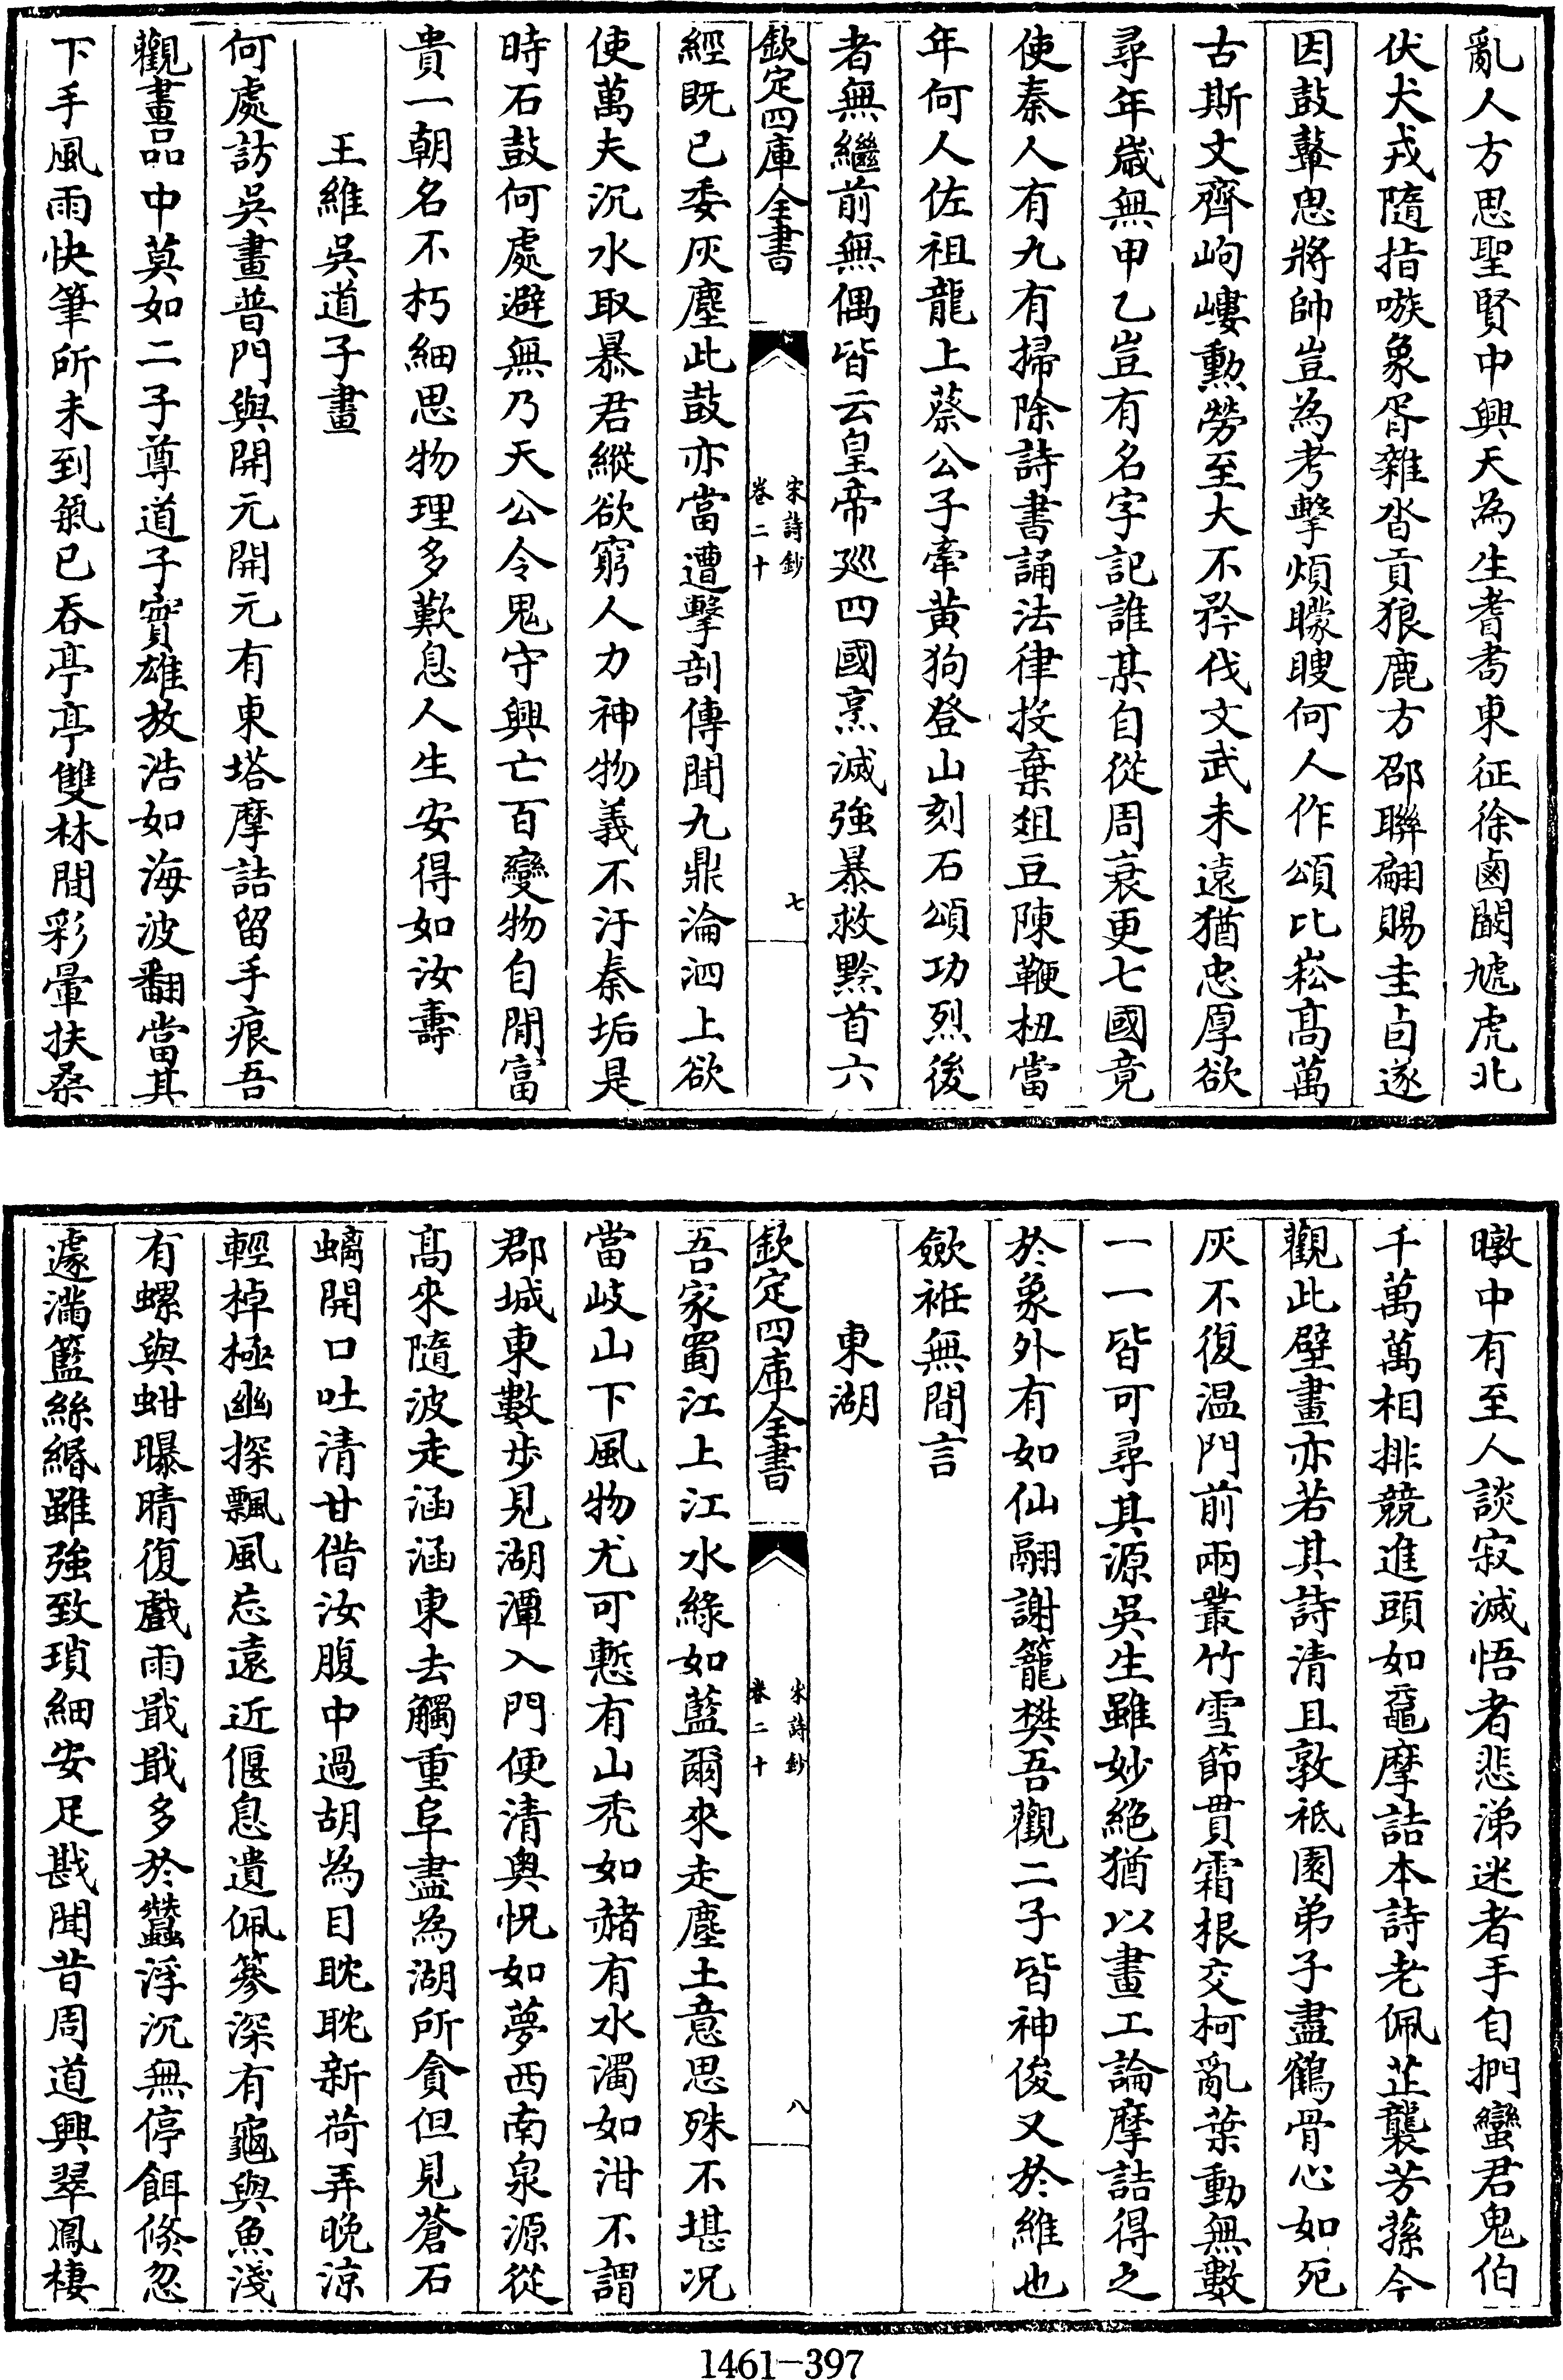 亂人方思聖賢中興天為生耆耉東征徐鹵闞虓虎北
伏犬戎隨指嗾象胥雜沓貢狼鹿方邵聯翩賜圭卣遂
因鼓鼙思將帥豈為考擊煩矇瞍何人作頌比崧髙萬
古斯文齊岣嶁勲勞至大不矜伐文武未遠猶忠厚欲
尋年歲無甲乙豈有名字記誰某自從周衰更七國竟
使秦人有九有掃除詩書誦法律投棄俎豆陳鞭杻當
年何人佐祖龍上蔡公子牽黄狗登山刻石頌功烈後
者無繼前無偶皆云皇帝廵四國烹滅強暴救黔首六
欽定四庫全書
宋詩鈔
卷二十
七
經既已委灰塵此鼓亦當遭擊剖傳聞九鼎淪泗上欲
使萬夫沉水取暴君縱欲窮人力神物義不汙秦垢是
時石鼓何處避無乃天公令鬼守興亡百變物自閒富
貴一朝名不朽細思物理多歎息人生安得如汝壽
王維吳道子畫
何處訪吳畫普門與開元開元有東塔摩詰留手痕吾
觀畫品中莫如二子尊道子實雄放浩如海波翻當其
下手風雨快筆所未到氣已吞亭亭雙林間彩暈扶桑
暾中有至人談寂滅悟者悲涕迷者手自捫蠻君鬼伯
千萬萬相排競進頭如黿摩詰本詩老佩芷襲芳蓀今
觀此壁畫亦若其詩清且敦祇園弟子盡鶴骨心如死
灰不復温門前兩叢竹雪節貫霜根交柯亂葉動無數
一一皆可尋其源吳生雖妙絶猶以畫工論摩詰得之
於象外有如仙翮謝籠樊吾觀二子皆神俊又於維也
斂袵無間言
東湖
欽定四庫全書
宋詩鈔
卷二十
八
吾家蜀江上江水綠如藍爾來走塵土意思殊不堪况
當岐山下風物尤可慙有山禿如赭有水濁如泔不謂
郡城東數步見湖潭入門便清奥怳如夢西南泉源從
髙來隨波走涵涵東去觸重阜盡為湖所貪但見蒼石
螭開口吐清甘借汝腹中過胡為目眈眈新荷弄晚涼
輕棹極幽探飄風忘遠近偃息遺佩篸深有龜與魚淺
有螺與蚶曝晴復戲雨戢戢多於蠶浮沉無停餌倏忽
遽滿籃絲緡雖強致瑣細安足戡聞昔周道興翠鳳棲
1461-397